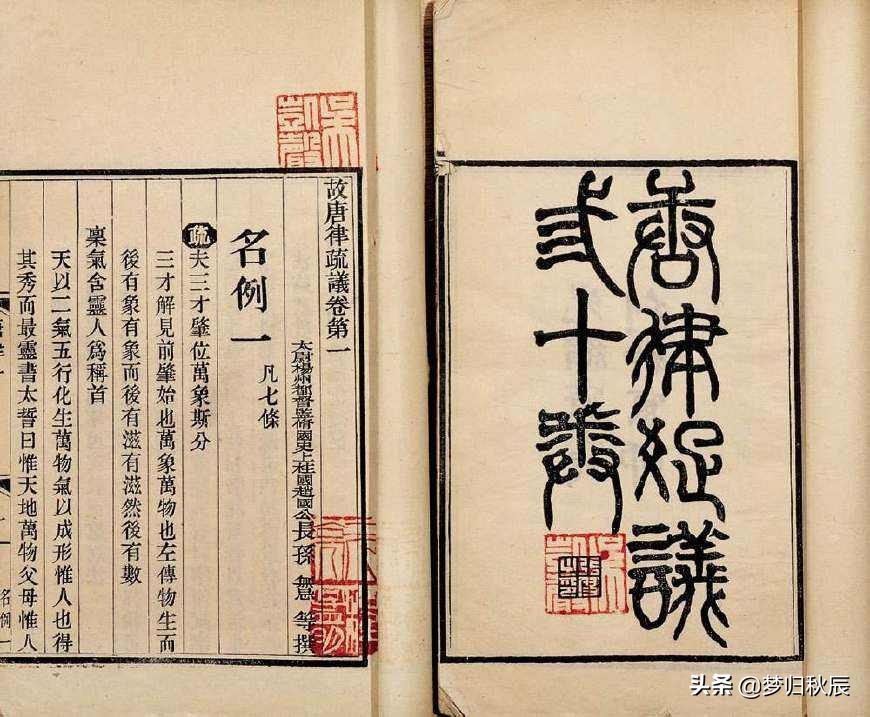 唐律疏議
弎十卷
故唐律疏議卷第一
太尉揚州都督監修國史上柱國趙國公長孫無忌等撰
名例一 凡七條
疏夫三才肇位萬象斯分
三才解見前肇始也萬象萬物也左傳物生而
後有象有象而後有滋有滋然後有數
稟氣含靈人爲稱首
天以二氣五行化生萬物氣以成形惟人也得
其秀而最靈書太誓曰惟天地萬物父母惟人
名例一
吳凱聲
头条 @梦归秋辰